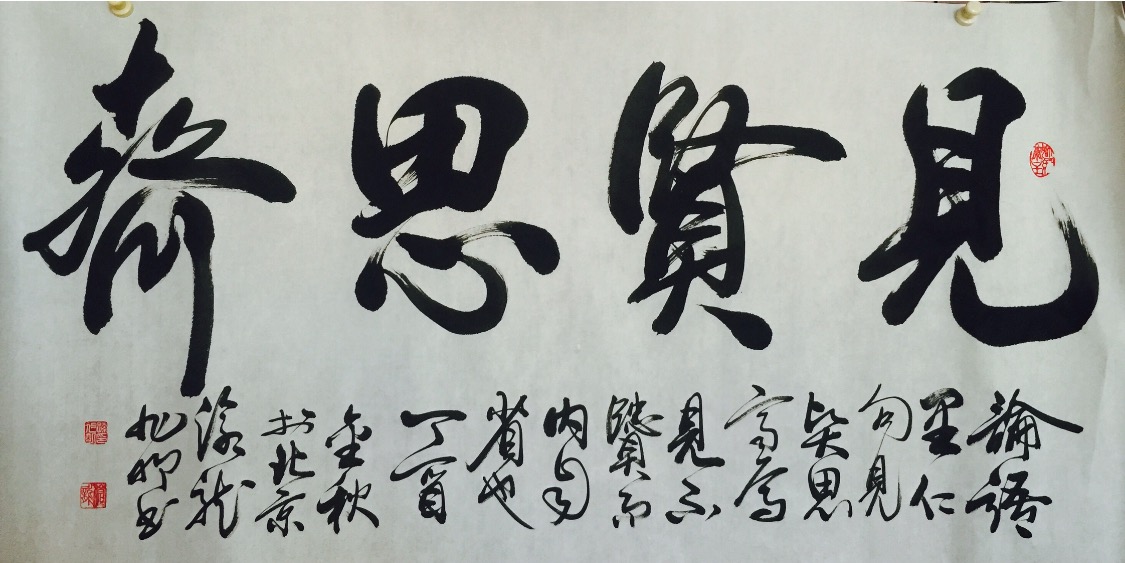 見賢思齊
論語
里仁
句見
賢思
齊焉
見不
賢而
内自
省也
丁酉
金秋
於北京
龍
書